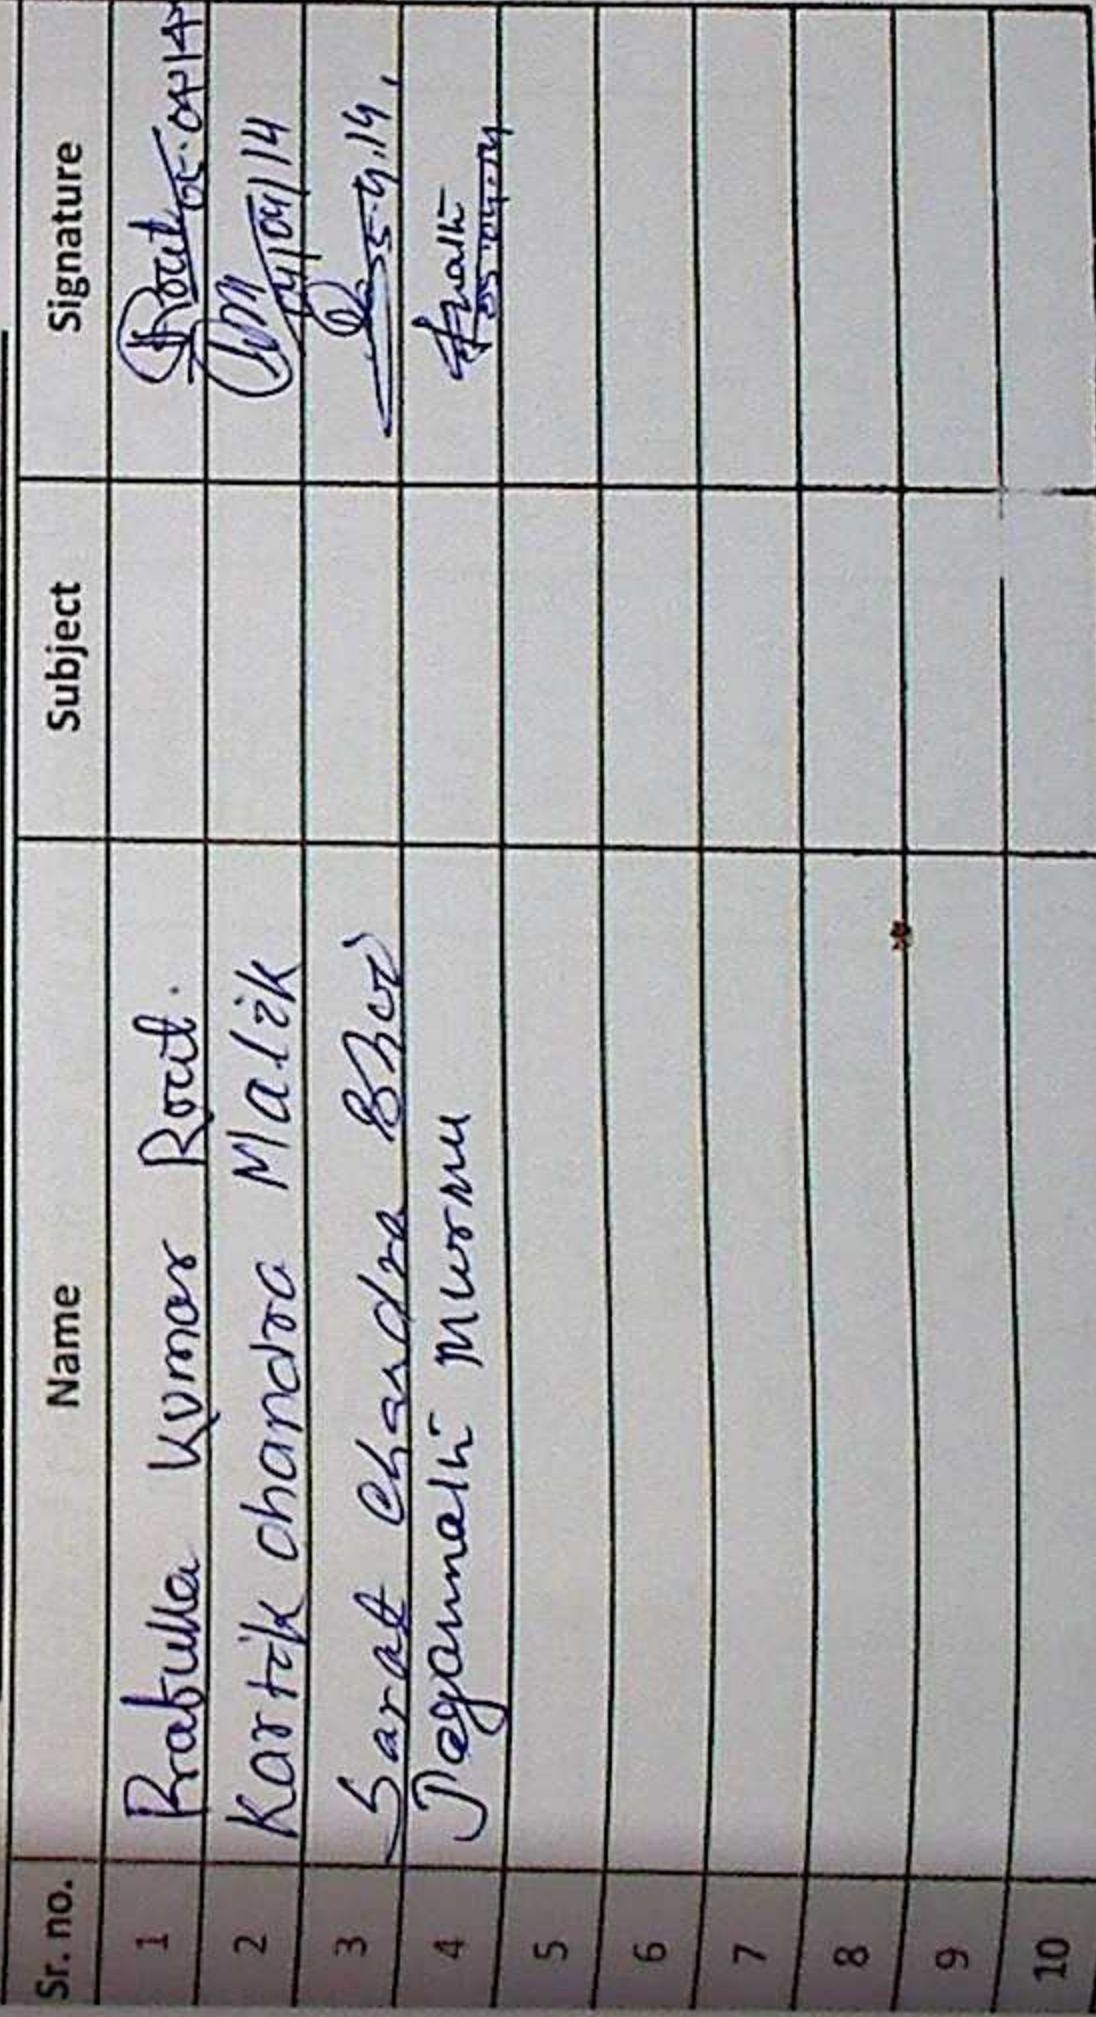 Sr. no. Name Subject Signature
1 Prafulla Kumar Rout. Rout 05.04.14
2 Kartik chandra Malik 04/14
3 Sarat Chandra Bhoi 5.4.14.
4 Murmu 05.04.14
5
6
7
8
9
10